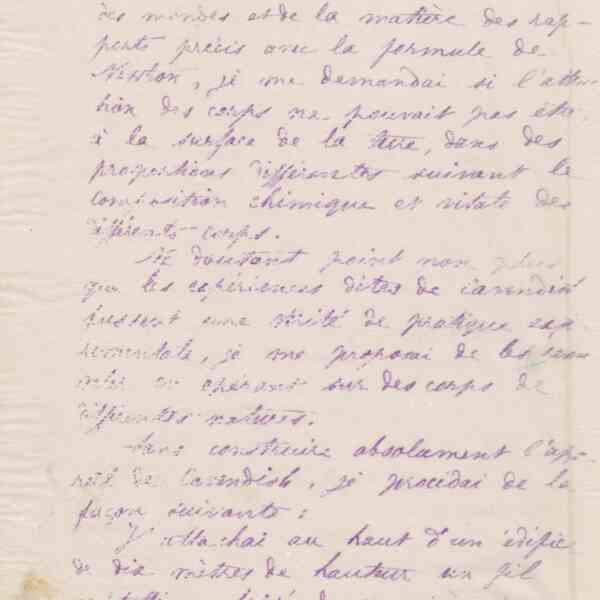 des mondes et de la matière des rap-
ports précis avec la formule de
Newton, je me demandai si l'attrac
tion des corps ne pouvait pas être
à la surface de la terre, dans des
proportions différentes suivant la
composition chimique et vitale des
différents corps.
Ne doutant point non plus
que les expériences dites de Cavendish
fussent une vérité de pratique expé
rimentale, je me proposai de les
en opérant sur des corps de
différentes natures.
Sans construire absolument l'appa
reil de Cavendish, je procédai de la
façon suivante :
J'attachai au haut d'un édifice
de dix mètres de hauteur un fil